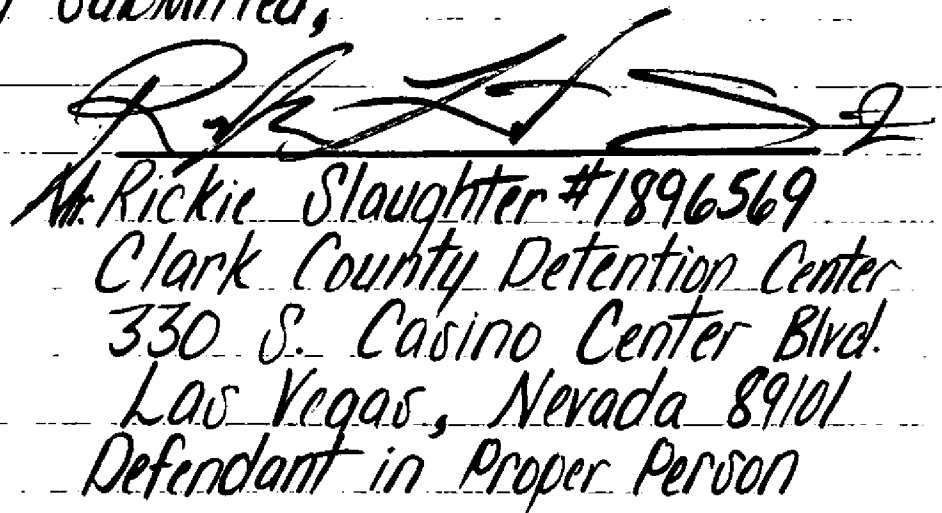 Submitted,
Mr. Rickie Slaughter #1896569
Clark County Detention Center
330 S. Casino Center Blvd.
Las Vegas, Nevada 89101
Defendant in Proper Person